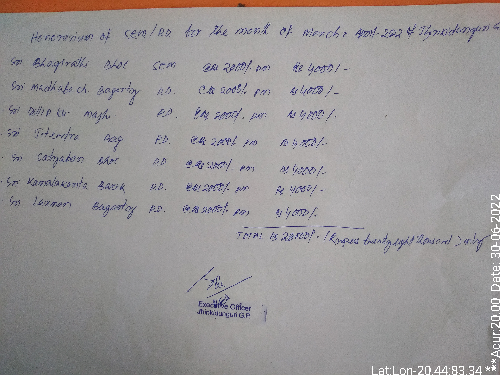 Honorarium of SEM/A.D. for the month of March & April-2022 of
Sri Bhagirathi Bhoi SEM @ Rs 2000/- pm Rs 4000/-
Sri Madhab ch. Bagartty A.D. @ Rs 2000/- pm Rs 4000/-
Sri Dillip kr. Majhi A.D. @ Rs 2000/- pm Rs 4000/-
Sri Jitendra Bag A.D. @ Rs 2000/- pm Rs 4000/-
Sri Satyaban Bhoi A.D. @ Rs 2000/- pm Rs 4000/-
Sri Kamalakanta Barik A.D. @ Rs 2000/- pm Rs 4000/-
Sri Bagartty A.D. @ Rs 2000/- pm Rs 4000/-
Total Rs 28000/- (Rupees twenty eight thousand) only
Executive Officer
G.P.
Lat:Lon-20.44:83.34 ***Acur:20.00 Date:30-06-2022